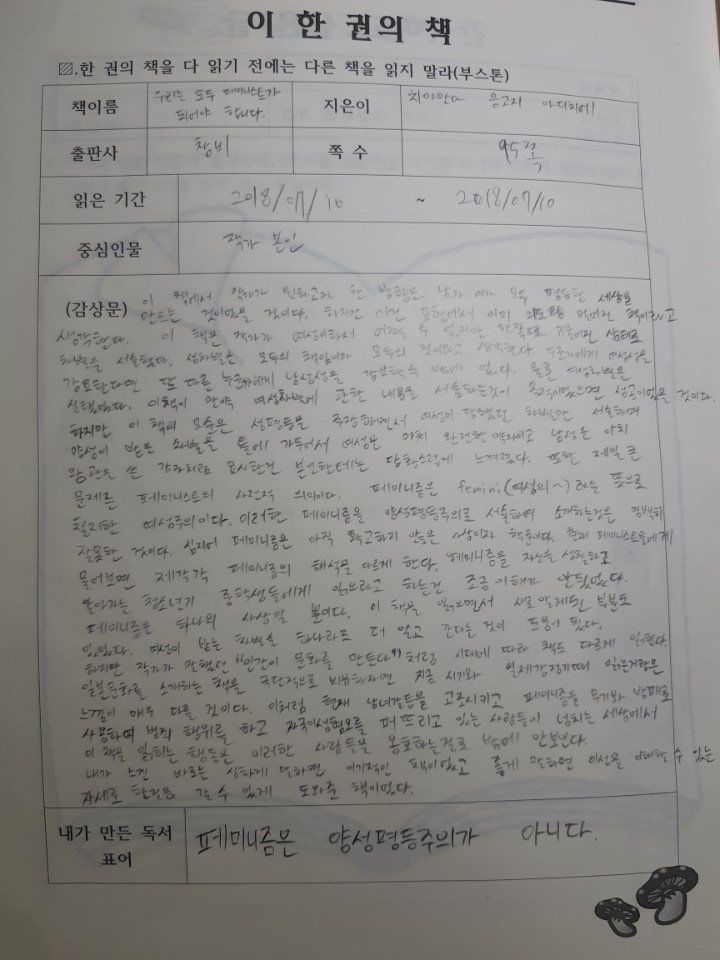 이 한 권의 책
▨.한 권의 책을 다 읽기 전에는 다른 책을 읽지 말라(부스톤)
책이름
우리는 모두 페미니스트가
되어야 합니다.
지은이
치마만다 응고지 아디치에
출판사
창비
쪽 수
95쪽
읽은 기간
2018/07/10 ~ 2018/07/10
중심인물
작가 본인
(감상문)
이 책에서 작가가 원하고자 한 방향은 남자 여자 모두 평등한 세상을
만드는 것이었을 것이다. 하지만 이건 표현에서 이미 멀어진 책이라고
생각한다. 이 책은 작가가 여성이라서 어쩔 수 없지만 한쪽으로 기울어진 상태로
차별을 서술했다. 성차별은 모두의 책임이자 모두의 것이라고 생각한다. 누군가에게 여성성을
강요한다면 또 다른 누군가에게 남성성을 강요할 수 밖에 없다. 물론 여성차별은
심했었다. 이 책이 만약 여성차별에 관한 내용을 서술하는것이 목적이었으면 성공이었을 것이다.
하지만 이 책의 모순은 성평등을 주장하면서 여성이 당했던 차별만 서술하며
양성이 받은 차별을 틀에 가두어서 여성은 마치 완전한 약자이고 남성은 마치
왕관을 쓴 강자처럼 묘사한건 본인한테는 당황스럽게 느껴졌다. 또한 제일 큰
문제는 페미니스트의 사전적 의미이다. 페미니즘은 femini(여성의~)라는 뜻으로
철저한 여성주의이다. 이러한 페미니즘을 양성평등주의로 서술하여 소개하는것은 명백히
잘못한 것이다. 심지어 페미니즘은 아직 확고하지 않은 사상이자 학문이다. 현재 페미니스트들에게
물어보면 제각각 페미니즘의 해석을 다르게 한다. 페미니즘을 자신을 성찰하고
알아가는 청소년기 중학생들에게 읽으라고 하는건 조금 이해가 안됐었다.
페미니즘은 하나의 사상일 뿐이다. 이 책을 읽으면서 새로 알게된 부분도
있었다. 여성이 받는 차별을 하나라도 더 알고 간다는 것이 도움이 됐다.
하지만 작가가 말했던 "인간이 문화를 만든다"처럼 시대에 따라 책도 다르게 읽힌다.
일본문화를 소개하는 책을 극단적으로 비유하자면 지금 시기와 일제강점기때 읽는거랑은
느낌이 매우 다를 것이다. 이처럼 현재 남녀갈등을 고조시키고 페미니즘을 무기와 방패로
사용하여 범죄 행위를 하고 자국이성혐오를 퍼뜨리고 있는 사람들이 넘치는 세상에서
이 책을 읽히는 행동은 이러한 사람들을 옹호하는걸로 밖에 안보인다.
내가 느낀 바로는 심하게 말하면 이기적인 책이었고 좋게 말하면 이성을 이해할 수 있는
자세로 한걸음 갈 수 있게 도와준 책이었다.
내가 만든 독서
표어
페미니즘은 양성평등주의가 아니다.